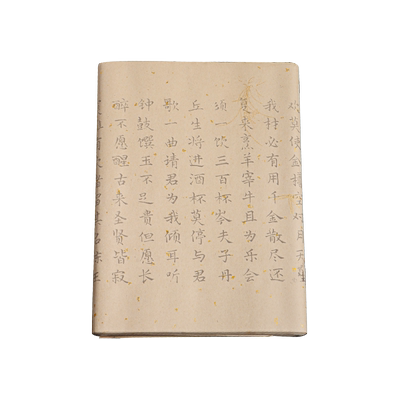 欢莫使金樽空对月天生
我材必有用千金散尽还
复来烹羊宰牛且为乐会
须一饮三百杯岑夫子丹
丘生将进酒杯莫停与君
歌一曲请君为我倾耳听
钟鼓馔玉不足贵但愿长
醉不愿醒古来圣贤皆寂